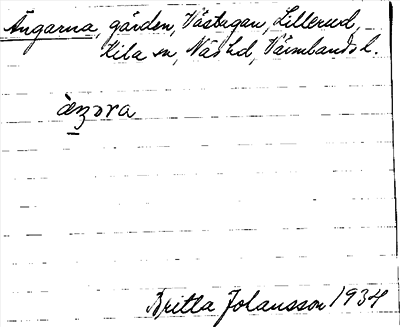 Ängarna, gården, Västugan, Lillerud,
Kila sn, Näs hd, Värmlands l.
Britta Johansson 1934